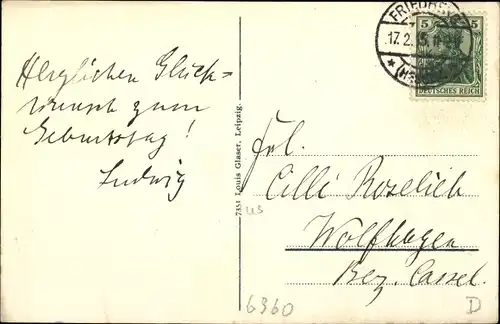 Herzlichen Glück=
wunsch zum
Geburtstag!
Ludwig
7351 Louis Glaser, Leipzig.
5 5
DEUTSCHES REICH
17.2.
Frl.
Cilli Roselieb
Wolfhagen
Bez. Cassel.
6360
D